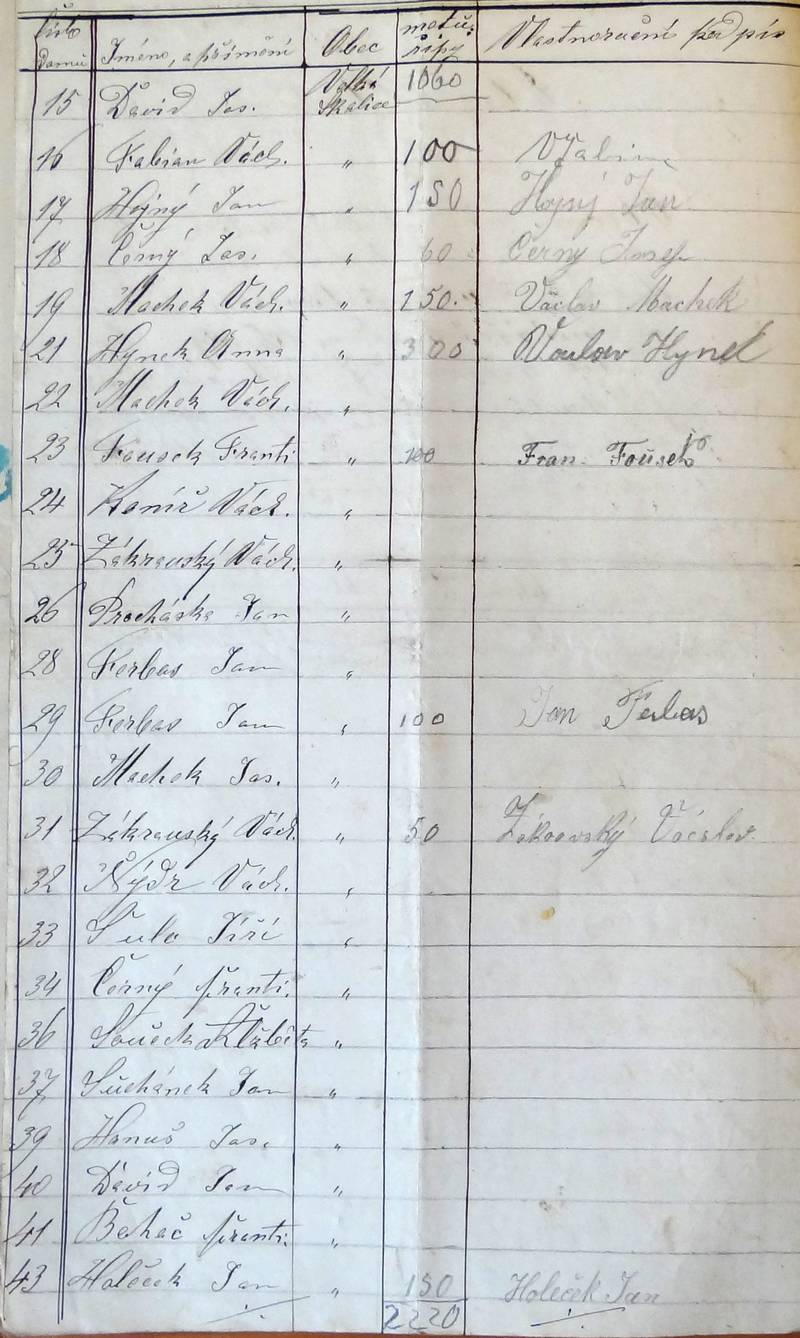 číslo domu Jméno, a příjmění Obec metů: řípy Vlastnoruční podpis
Velká Skalice 1060
15 David Jos.
16 Fabian Václ. " 100
17 Hojný Jan " 150 Hojný Jan
18 Černý Jos. " 60 Černy Josef
19 Machek Václ. " 150. Václav Machek
21 Hynek Anna " 300 Vaclav Hynek
22 Machek Václ. "
23 Fousek Franti " 100 Fran. Foušek
24 Václ. "
25 Zákravský Václ. "
26 Procháska Jan "
28 Ferbas Jan "
29 Ferbas Jan " 100 Jan Ferbas
30 Machek Jos. "
31 Zákravský Václ. " 50 Zákravský Václav
32 Nýdr Václ. "
33 Šulc Jiří "
34 Černý Franti. "
36 Souček Alžběta "
37 Suchánek Jan "
39 Hanuš Jos. "
40 David Jan "
41 Běhač Franti. "
43 Holeček Jan " 150 Holeček Jan
2220